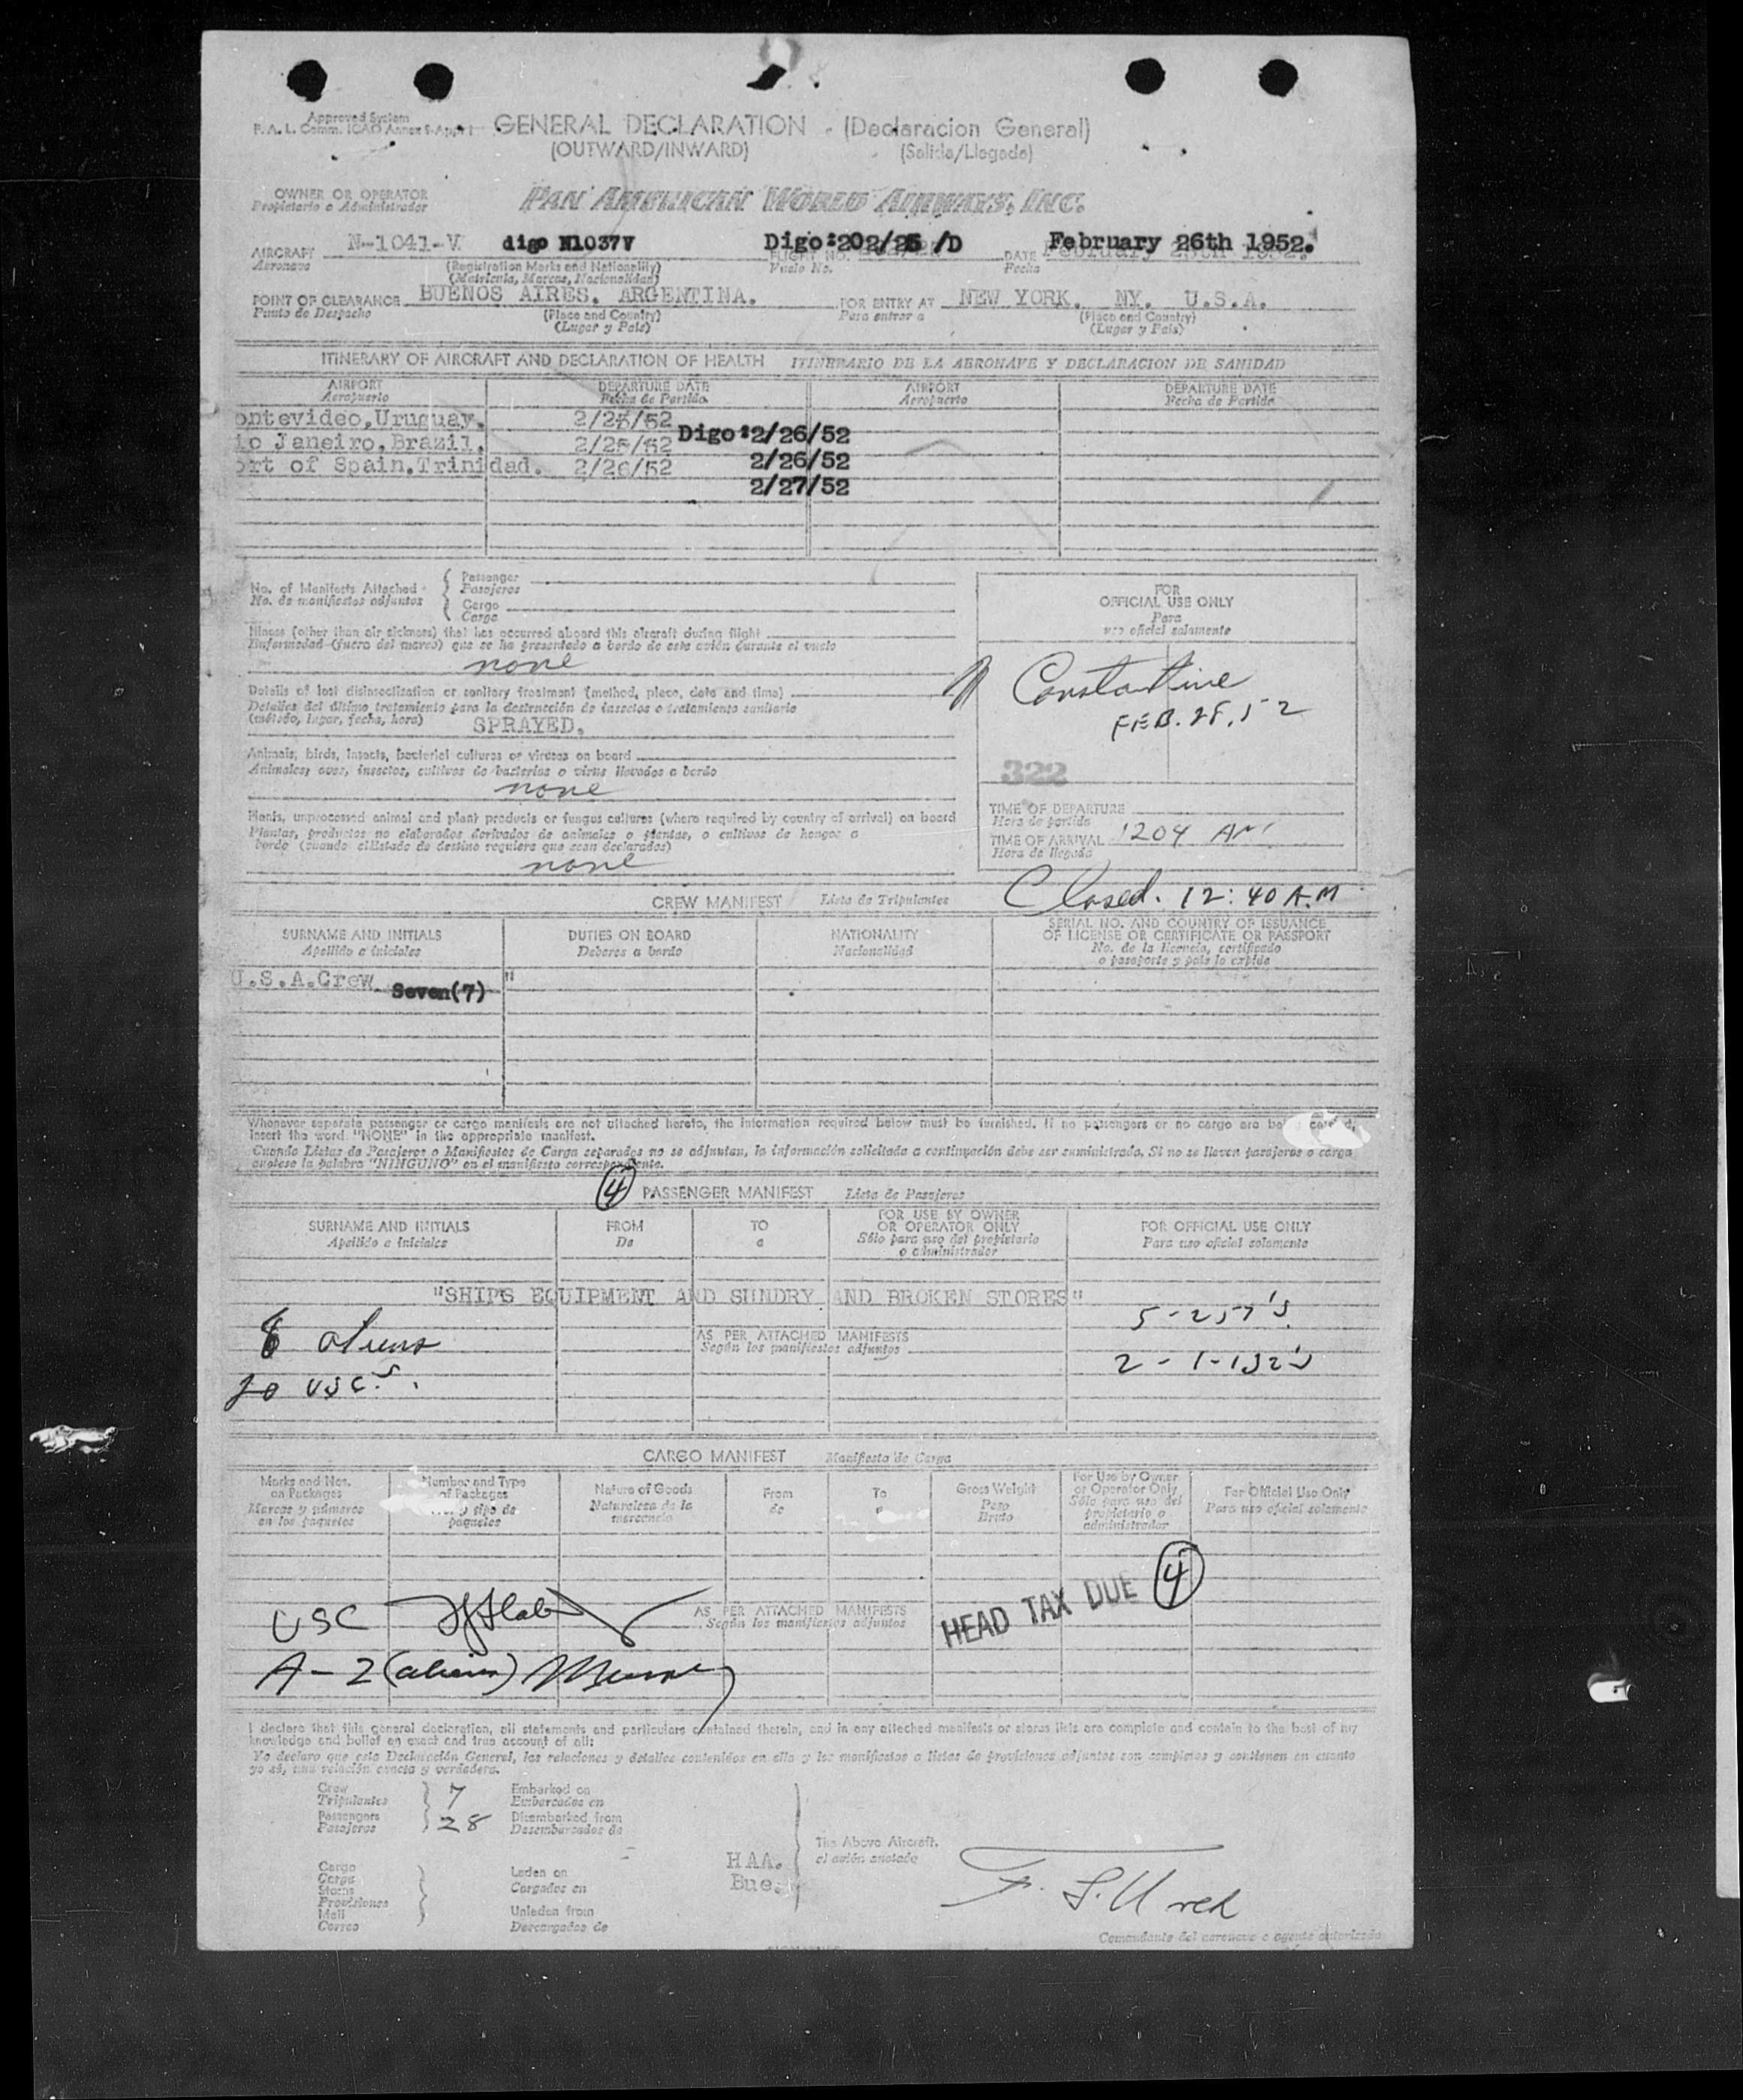 Approved System
F.A.L. Comm. ICAO Annex 9-App. 1
GENERAL DECLARATION - (Declaracion General)
(OUTWARD/INWARD) (Salida/Llegada)
OWNER OR OPERATOR
Propietario o Administrador
PAN AMERICAN WORLD AIRWAYS, INC.
AIRCRAFT N-1041-V digo N1037V FLIGHT NO. Digo:202/25 /D DATE February 26th 1952.
Aeronave (Registration Marks and Nationality) Vuelo No. Fecha
(Matricula, Marcas, Nacionalidad)
POINT OF CLEARANCE BUENOS AIRES. ARGENTINA. FOR ENTRY AT NEW YORK. NY. U.S.A.
Punto de Despacho (Place and Country) Para entrar a (Place and Country)
(Lugar y País) (Lugar y País)
ITINERARY OF AIRCRAFT AND DECLARATION OF HEALTH ITINERARIO DE LA AERONAVE Y DECLARACION DE SANIDAD
AIRPORT DEPARTURE DATE AIRPORT DEPARTURE DATE
Aeropuerto Fecha de Partida Aeropuerto Fecha de Partida
ontevideo,Uruguay. 2/25/52 Digo:2/26/52
io Janeiro,Brazil. 2/25/52 2/26/52
ort of Spain.Trinidad. 2/26/52 2/27/52
No. of Manifests Attached Passenger
No. de manifiestos adjuntos Pasajeros
Cargo
Carga
FOR
OFFICIAL USE ONLY
Para
uso oficial solamente
Illness (other than air sickness) that has occurred aboard this aircraft during flight
Enfermedad (fuera del mareo) que se ha presentado a bordo de este avión durante el vuelo
none
Constantine
FEB. 28, 52
Details of last disinsectization or sanitary treatment (method, place, date and time)
Detalles del último tratamiento para la destrucción de insectos o tratamiento sanitario
(método, lugar, fecha, hora) SPRAYED.
Animals, birds, insects, bacterial cultures or viruses on board
Animales, aves, insectos, cultivos de bacterias o virus llevados a bordo
none
322
TIME OF DEPARTURE
Hora de partida
TIME OF ARRIVAL 1204 AM
Hora de llegada
Plants, unprocessed animal and plant products or fungus cultures (where required by country of arrival) on board
Plantas, productos no elaborados derivados de animales o plantas, o cultivos de hongos a
bordo (cuando el Estado de destino requiera que sean declarados)
none
Closed. 12:40 A.M
CREW MANIFEST Lista de Tripulantes
SURNAME AND INITIALS DUTIES ON BOARD NATIONALITY SERIAL NO. AND COUNTRY OF ISSUANCE
OF LICENSE OR CERTIFICATE OR PASSPORT
Apellido e iniciales Deberes a bordo Nacionalidad No. de la licencia, certificado
o pasaporte y país lo expide
U.S.A.Crew Seven(7) "
Whenever separate passenger or cargo manifests are not attached hereto, the information required below must be furnished. If no passengers or no cargo are
insert the word "NONE" in the appropriate manifest.
Cuando Listas de Pasajeros o Manifiestos de Carga separados no se adjuntan, la información solicitada a continuación debe ser suministrada. Si no se llevan pasajeros o carga
anotese la palabra "NINGUNO" en el manifiesto correspondiente.
4 PASSENGER MANIFEST Lista de Pasajeros
SURNAME AND INITIALS FROM TO FOR USE BY OWNER
OR OPERATOR ONLY FOR OFFICIAL USE ONLY
Apellido e iniciales De a Sólo para uso del propietario
o administrador Para uso oficial solamente
"SHIPS EQUIPMENT AND SUNDRY AND BROKEN STORES"
5-257's
8 aliens AS PER ATTACHED MANIFESTS
Según los manifiestos adjuntos
2-1-132's
20 USC's.
CARGO MANIFEST Manifiesto de Carga
Marks and Nos.
on Packages
Marcas y números
en los paquetes
Number and Type
of Packages
y tipo de
paquetes
Nature of Goods
Naturaleza de la
mercancía
From
de
To
Gross Weight
Peso
Bruto
For Use by Owner
or Operator Only
Sólo para uso del
propietario o
administrador
For Official Use Only
Para uso oficial solamente
HEAD TAX DUE 4
USC
AS PER ATTACHED MANIFESTS
Según los manifiestos adjuntos
A-2 (aliens)
I declare that this general declaration, all statements and particulars contained therein, and in any attached manifests or stores lists are complete and contain to the best of my
knowledge and belief an exact and true account of all:
Yo declaro que esta Declaración General, las relaciones y detalles contenidos en ella y los manifiestos o listas de provisiones adjuntos son completos y contienen en cuanto
yo sé, una relación exacta y verdadera.
Crew 7 Embarked on
Tripulantes Embarcados en
Passengers 28 Disembarked from
Pasajeros Desembarcados de
The Above Aircraft.
el avión anotado
HAA.
Bue.
Cargo
Carga
Stores
Provisiones
Mail
Correo
Laden on
Cargados en
Unladen from
Descargados de
Comandante del aeronave o agente autorizado